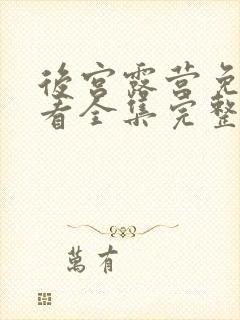 後宮露营免
看全集完整
萬有